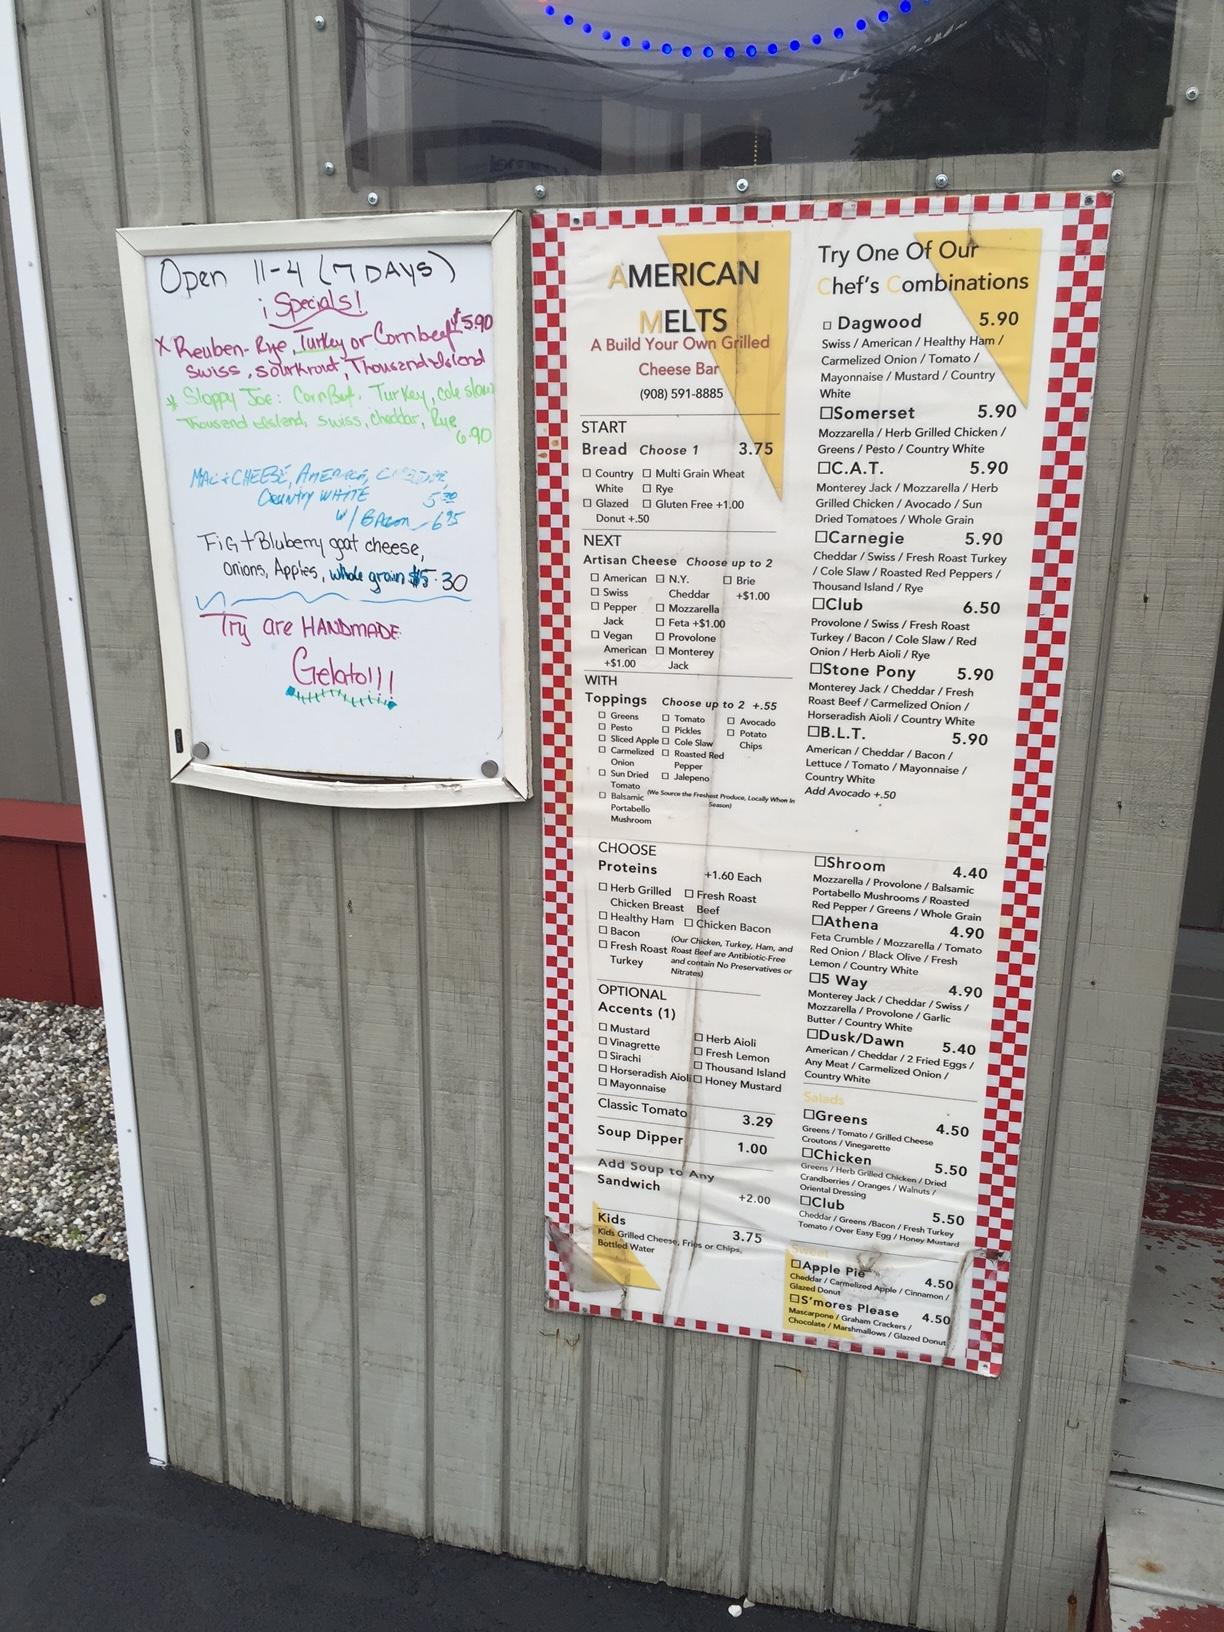 Open 11-4 (7 DAYS)
¡ Specials!
X Reuben- Rye, Turkey or Cornbeef $5.90
Swiss, sourkrout, Thousand Island
* Sloppy Joe: CornBef. Turkey, cole slaw
Thousand Island, swiss, cheddar, Rye
6.90
MAC + CHEESE, AMERICAN,
COUNTRY WHITE 5.30
W/ BACON 6.95
FiG + Bluberry goat cheese,
onions, Apples, whole grain $5.30
Try are HANDMADE
Gelato!!!
AMERICAN
MELTS
A Build Your Own Grilled
Cheese Bar
(908) 591-8885
START
Bread Choose 1 3.75
Country White
Glazed Donut +.50
Multi Grain Wheat
Rye
Gluten Free +1.00
NEXT
Artisan Cheese Choose up to 2
American
Swiss
Pepper Jack
Vegan American +$1.00
N.Y. Cheddar
Mozzarella
Feta +$1.00
Provolone
Monterey Jack
Brie +$1.00
WITH
Toppings Choose up to 2 +.55
Greens
Pesto
Sliced Apple
Carmelized Onion
Sun Dried Tomato
Balsamic Portabello Mushroom
Tomato
Pickles
Cole Slaw
Roasted Red Pepper
Jalepeno
Avocado
Potato Chips
(We Source the Freshest Produce, Locally When In
Season)
CHOOSE
Proteins +1.60 Each
Herb Grilled Chicken Breast
Healthy Ham
Bacon
Fresh Roast Turkey
Fresh Roast Beef
Chicken Bacon
(Our Chicken, Turkey, Ham, and
Roast Beef are Antibiotic-Free
and contain No Preservatives or
Nitrates)
OPTIONAL
Accents (1)
Mustard
Vinagrette
Sirachi
Horseradish Aioli
Mayonnaise
Herb Aioli
Fresh Lemon
Thousand Island
Honey Mustard
Classic Tomato 3.29
Soup Dipper 1.00
Add Soup to Any
Sandwich +2.00
Kids 3.75
Kids Grilled Cheese, Fries or Chips,
Bottled Water
Try One Of Our
Chef's Combinations
Dagwood 5.90
Swiss / American / Healthy Ham /
Carmelized Onion / Tomato /
Mayonnaise / Mustard / Country
White
Somerset 5.90
Mozzarella / Herb Grilled Chicken /
Greens / Pesto / Country White
C.A.T. 5.90
Monterey Jack / Mozzarella / Herb
Grilled Chicken / Avocado / Sun
Dried Tomatoes / Whole Grain
Carnegie 5.90
Cheddar / Swiss / Fresh Roast Turkey
/ Cole Slaw / Roasted Red Peppers /
Thousand Island / Rye
Club 6.50
Provolone / Swiss / Fresh Roast
Turkey / Bacon / Cole Slaw / Red
Onion / Herb Aioli / Rye
Stone Pony 5.90
Monterey Jack / Cheddar / Fresh
Roast Beef / Carmelized Onion /
Horseradish Aioli / Country White
B.L.T. 5.90
American / Cheddar / Bacon /
Lettuce / Tomato / Mayonnaise /
Country White
Add Avocado +.50
Shroom 4.40
Mozzarella / Provolone / Balsamic
Portabello Mushrooms / Roasted
Red Pepper / Greens / Whole Grain
Athena 4.90
Feta Crumble / Mozzarella / Tomato
Red Onion / Black Olive / Fresh
Lemon / Country White
5 Way 4.90
Monterey Jack / Cheddar / Swiss /
Mozzarella / Provolone / Garlic
Butter / Country White
Dusk/Dawn 5.40
American / Cheddar / 2 Fried Eggs /
Any Meat / Carmelized Onion /
Country White
Salads
Greens 4.50
Greens / Tomato / Grilled Cheese
Croutons / Vinegarette
Chicken 5.50
Greens / Herb Grilled Chicken / Dried
Crandberries / Oranges / Walnuts /
Oriental Dressing
Club 5.50
Cheddar / Greens /Bacon / Fresh Turkey
Tomato / Over Easy Egg / Honey Mustard
Sweet
Apple Pie 4.50
Cheddar / Carmelized Apple / Cinnamon /
Glazed Donut
S'mores Please 4.50
Mascarpone / Graham Crackers /
Chocolate / Marshmallows / Glazed Donut